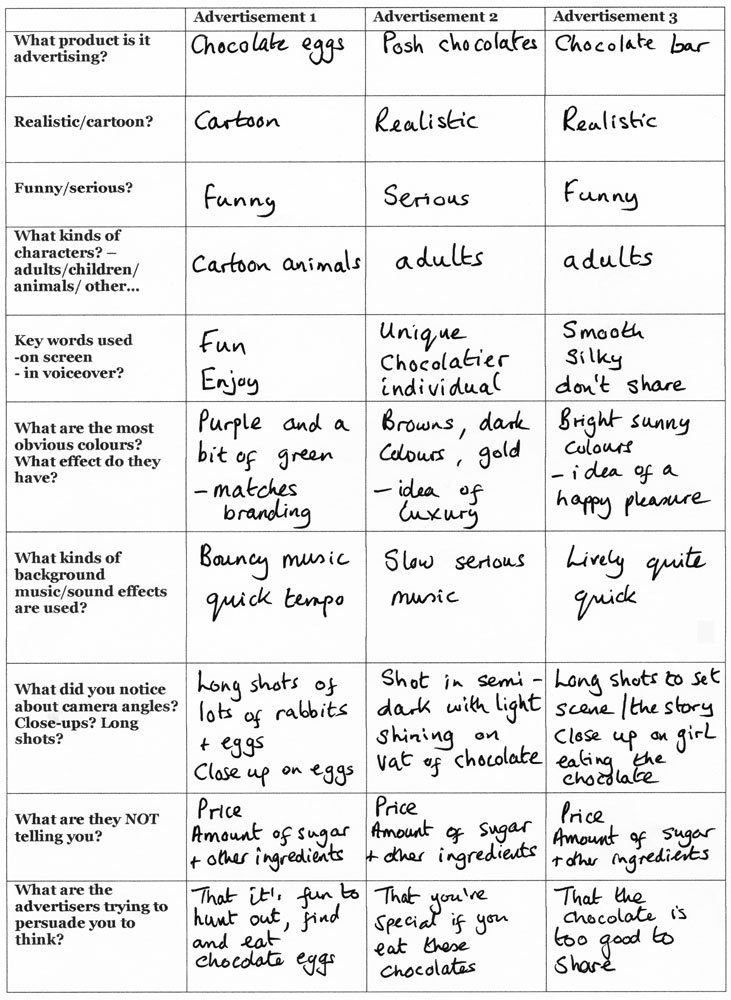 Advertisement 1 Advertisement 2 Advertisement 3
What product is it
advertising?
Chocolate eggs
Posh chocolates
Chocolate bar
Realistic/cartoon?
Cartoon
Realistic
Realistic
Funny/serious?
Funny
Serious
Funny
What kinds of
characters? –
adults/children/
animals/ other...
Cartoon animals
adults
adults
Key words used
-on screen
- in voiceover?
Fun
Enjoy
Unique
Chocolatier
individual
Smooth
Silky
don't share
What are the most
obvious colours?
What effect do they
have?
Purple and a
bit of green
– matches
branding
Browns, dark
colours, gold
– idea of
luxury
Bright sunny
colours
– idea of a
happy pleasure
What kinds of
background
music/sound effects
are used?
Bouncy music
quick tempo
Slow serious
music
Lively quite
quick
What did you notice
about camera angles?
Close-ups? Long
shots?
Long shots of
lots of rabbits
+ eggs
Close up on eggs
Shot in semi-
dark with light
shining on
vat of chocolate
Long shots to set
scene/the story
Close up on girl
eating the
chocolate
What are they NOT
telling you?
Price
Amount of sugar
+ other ingredients
Price
Amount of sugar
+ other ingredients
Price
Amount of sugar
+ other ingredients
What are the
advertisers trying to
persuade you to
think?
That it's fun to
hunt out, find
and eat
chocolate eggs
That you're
special if you
eat these
chocolates
That the
chocolate is
too good to
share